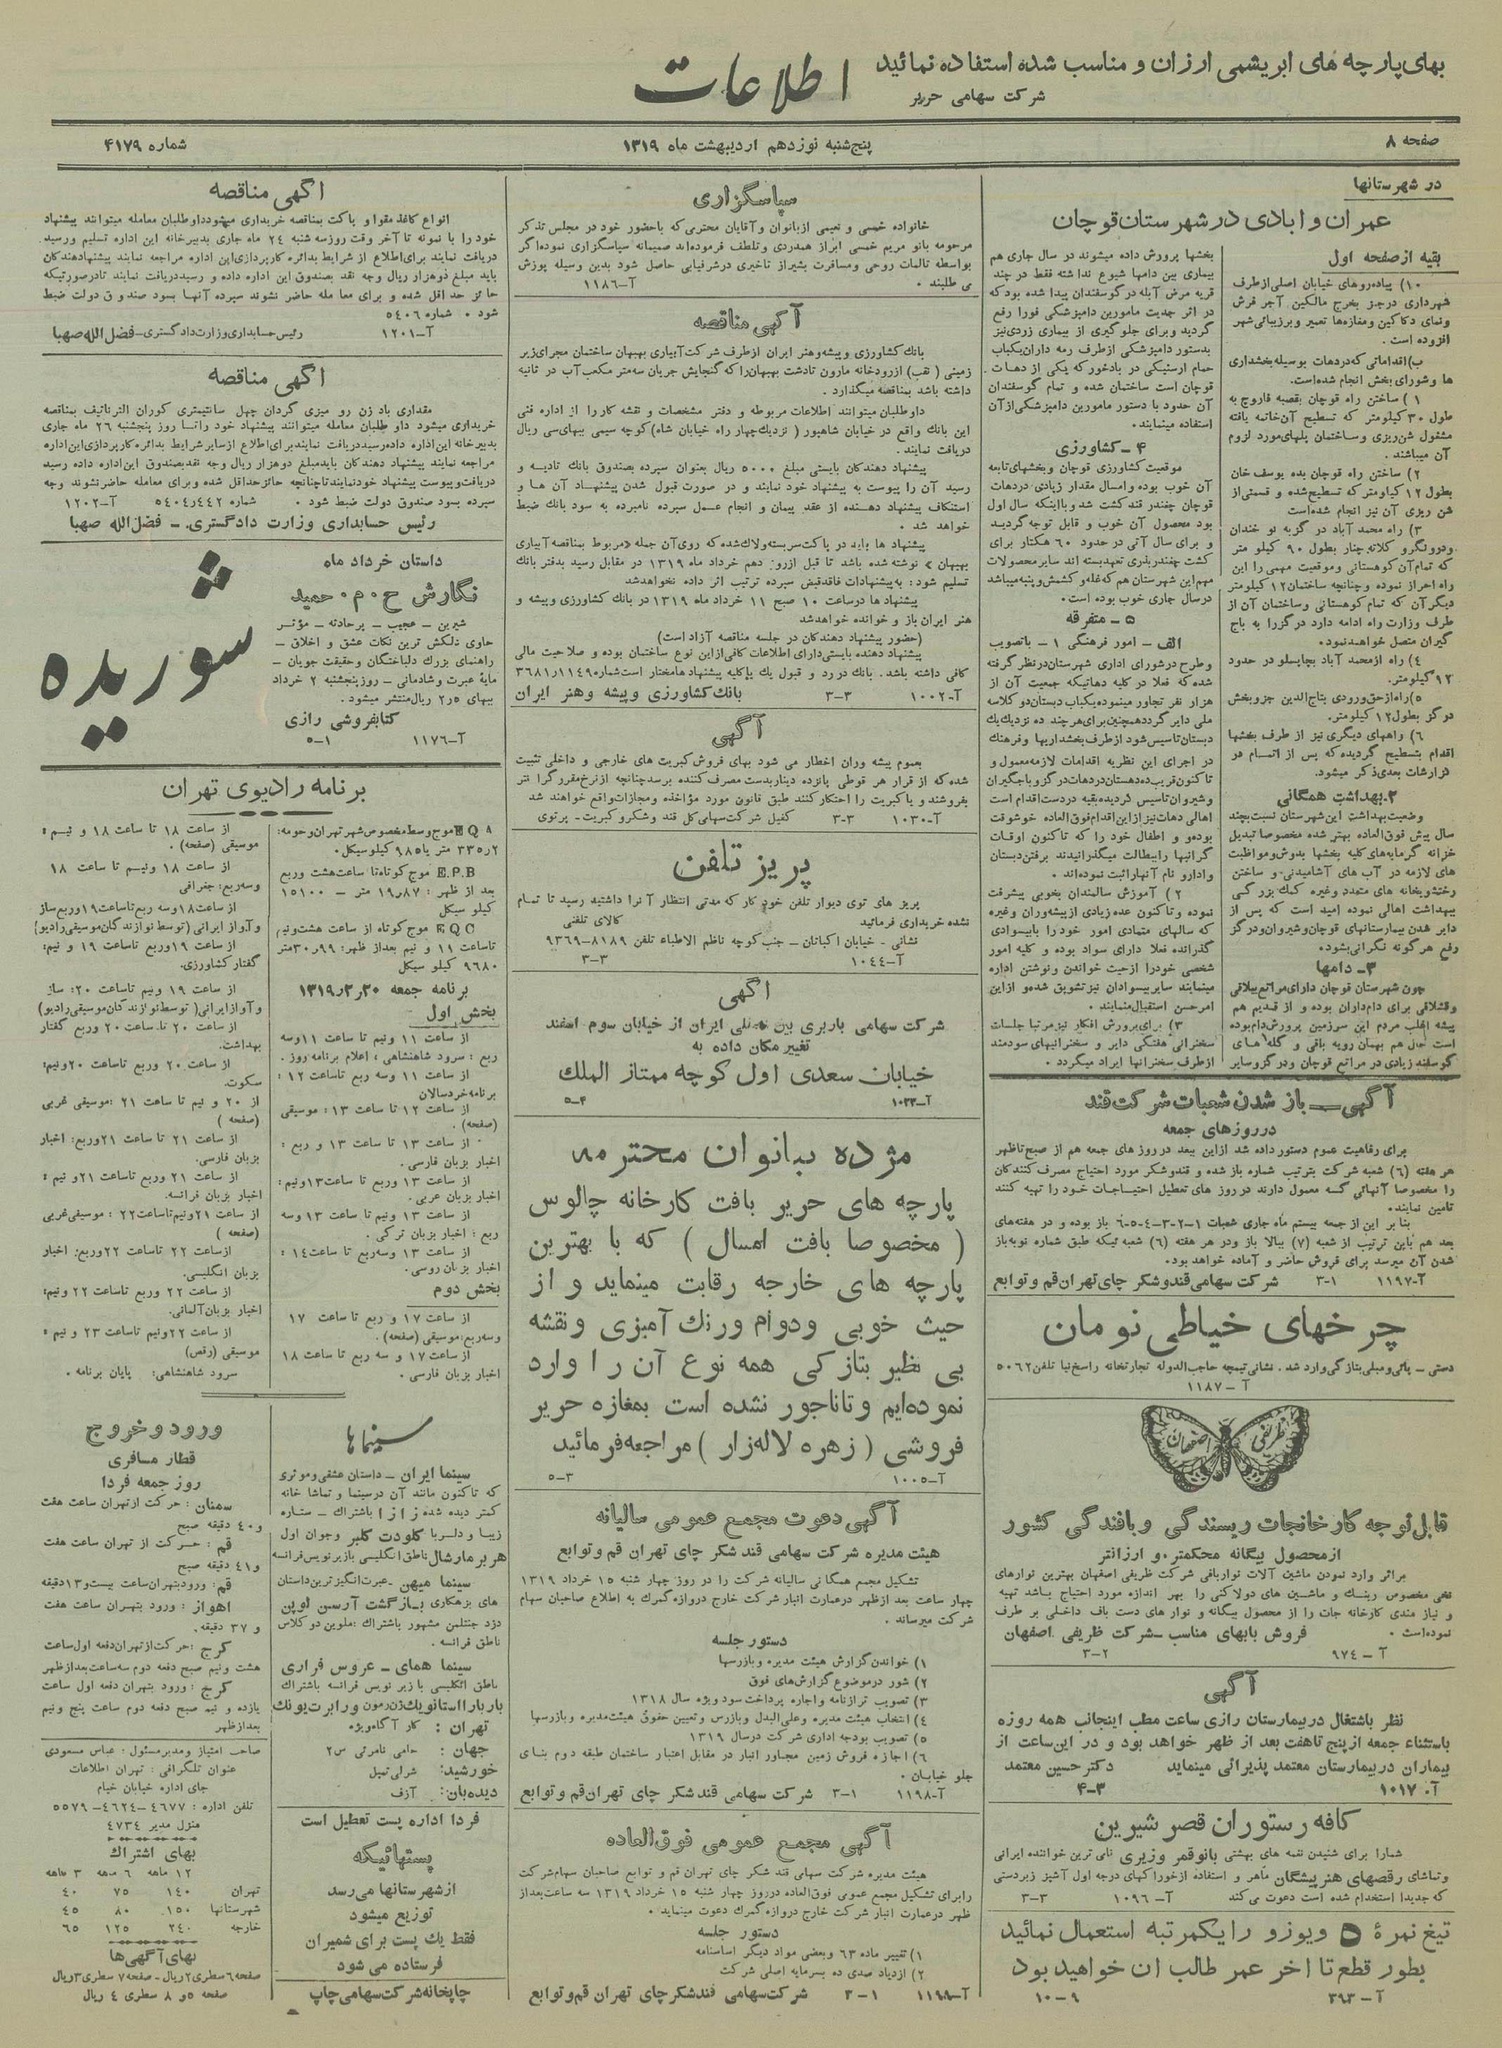 بهای پارچه های ابریشمی ارزان و مناسب شده استفاده نمائید
شرکت سهامی حریر
اطلاعات
صفحه ۸
پنج‌شنبه نوزدهم اردیبهشت ماه ۱۳۱۹
شماره ۴۱۷۹
در شهرستانها
عمران و ابادی در شهرستان قوچان
بقیه از صفحه اول
۱۰) پیاده‌روهای خیابان اصلی از طرف
شهرداری درجز بخرج مالکین آجر فرش
ونمای دکاکین ومغازه‌ها تعمیر و برزیبائی شهر
افزوده است .
ب) اقداماتی که دردهات بوسیله بخشداری
ها و شورای بخش انجام شده‌است.
۱) ساختن راه قوچان بقصبه فاروج به
طول ۳۰ کیلومتر که تسطیح آن خاتمه یافته
مشغول شن‌ریزی وساختمان پلهای مورد لزوم
آن میباشند.
۲) ساختن راه قوچان بده یوسف خان
بطول ۱۲ کیلومتر که تسطیح شده و قسمتی از
شن ریزی آن نیز انجام شده‌است
۳) راه محمد آباد در گزبه نو خندان
ودرونگرو کلاته چنار بطول ۹۰ کیلو متر
که تمام آن کوهستانی وموقعیت مهمی را این
راه احراز نموده و چنانچه ساختمان ۱۲ کیلومتر
دیگر آن که تمام کوهستانی وساختمان آن از
طرف وزارت راه ادامه دارد در گزرا به باج
گیران متصل خواهد نمود.
۴) راه از محمد آباد بچاپسلو در حدود
۱۲ کیلومتر.
۵) راه از حق‌وردی بتاج‌الدین جزو بخش
درگز بطول ۱۲ کیلومتر.
۶) راههای دیگری نیز از طرف بخشها
اقدام بتسطیح گردیده که پس از اتمام در
گزارشات بعدی ذکر میشود.
۲- بهداشت همگانی
وضعیت بهداشت این شهرستان نسبت بچند
سال پیش فوق‌العاده بهتر شده مخصوصا تبدیل
خزانه گرمابه‌های کلیه بخشها بدوش ومواظبت
های لازمه در آب های آشامیدنی و ساختن
رختشویخانه های متعدد وغیره کمک بزرگی
ببهداشت اهالی نموده امید است که پس از
دایر شدن بیمارستانهای قوچان وشیروان و درگز
رفع هرگونه نگرانی بشود.
۳- دامها
چون شهرستان قوچان دارای مراتع ییلاقی
وقشلاقی برای دام‌داران بوده و از قدیم هم
پیشه اغلب مردم این سرزمین پرورش دام بوده
است حال هم بهمان رویه باقی و گله‌های
گوسفند زیادی در مراتع قوچان و درگز وسایر
بخشها پرورش داده میشوند در سال جاری هم
بیماری بین دامها شیوع نداشته فقط در چند
قریه مرض آبله درگوسفندان پیدا شده بود که
در اثر جدیت مامورین دامپزشکی فورا رفع
گردید وبرای جلوگیری از بیماری زردی نیز
بدستور دامپزشکی از طرف رمه داران یکباب
حمام ارسنیکی در بادخور که یکی از دهات
قوچان است ساختمان شده و تمام گوسفندان
آن حدود با دستور مامورین دامپزشکی از آن
استفاده مینمایند.
۴- کشاورزی
موقعیت کشاورزی قوچان و بخشهای تابعه
آن خوب بوده وامسال مقدار زیادی دردهات
قوچان چغندر قند کشت شد و بااینکه سال اول
بود محصول آن خوب و قابل توجه گردید
و برای سال آتی در حدود ۶۰ هکتار برای
کشت چغندر بذری تعهد بسته‌اند سایر محصولات
مهم این شهرستان هم که غله و کشمش و پنبه میباشد
در سال جاری خوب بوده است.
۵- متفرقه
الف - امور فرهنگی ۱- باتصویب
وطرح در شورای اداری شهرستان در نظر گرفته
شده که فعلا در کلیه دهاتیکه جمعیت آن از
هزار نفر تجاوز مینموده یکباب دبستان دو کلاسه
ملی دایر گردد همچنین برای هر چند ده نزدیک یک
دبستان تاسیس شود از طرف بخشداریها و فرهنگ
در اجرای این نظریه اقدامات لازمه معمول و
تاکنون قریب ده دبستان دردهات درگز و باجگیران
و شیروان تاسیس گردیده بقیه در دست اقدام است
اهالی دهات نیز از این اقدام فوق‌العاده خوشوقت
بوده‌و اطفال خود را که تاکنون اوقات
گرانبها را ببطالت میگذرانیدند برفتن دبستان
وادار و نام آنهارا ثبت نموده‌اند.
۲) آموزش سالمندان بخوبی پیشرفت
نموده و تاکنون عده زیادی از پیشه‌وران وغیره
که سالهای متمادی امور خود را با بیسوادی
گذرانده فعلا دارای سواد بوده و کلیه امور
شخصی خودرا از حیث خواندن ونوشتن اداره
مینمایند سایر بیسوادان نیز تشویق شده‌و از این
امر حسن استقبال مینمایند.
۳) برای پرورش افکار نیز مرتبا جلسات
سخنرانی هفتگی دایر و سخنرانیهای سودمند
از طرف سخنرانها ایراد میگردد .
آگهی - باز شدن شعبات شرکت قند
در روزهای جمعه
برای رفاهیت عموم دستور داده شد ازاین ببعد در روز های جمعه هم از صبح تاظهر
هر هفته (۶) شعبه شرکت بترتیب شماره باز شده و قندوشکر مورد احتیاج مصرف کنندگان
را مخصوصا آنهائی که معمول دارند در روز های تعطیل احتیاجات خود را تهیه کنند
تامین نمایند.
بنا بر این از جمعه بیستم ماه جاری شعبات ۱-۲-۳-۴-۵-۶ باز بوده و در هفته‌های
بعد هم باین ترتیب از شعبه (۷) ببالا باز ودر هر هفته (۶) شعبه ئیکه طبق شماره نوبه‌باز
شدن آن میرسد برای فروش حاضر و آماده خواهد بود.
آ-۱۱۹۷ ۱-۳ شرکت سهامی قندوشکر چای تهران قم و توابع
چرخهای خیاطی نومان
دستی - پائی ومبلی بتازگی وارد شد . نشانی تیمچه حاجب‌الدوله تجارتخانه راسخ‌نیا تلفن ۵۰۶۲
آ - ۱۱۸۷
ظریفی اصفهان
قابل توجه کارخانجات ریسندگی و بافندگی کشور
از محصول بیگانه محکمتر و ارزانتر
براثر وارد نمودن ماشین آلات نواربافی شرکت ظریفی اصفهان بهترین نوارهای
نخی مخصوص رینک و ماشین های دولاکنی را بهر اندازه مورد احتیاج باشد تهیه
و نیاز مندی کارخانه جات را از محصول بیگانه و نوار های دست باف داخلی بر طرف
نموده‌است .
فروش بابهای مناسب - شرکت ظریفی اصفهان
آ - ۹۷۴ ۲-۳
آگهی
نظر باشتغال دربیمارستان رازی ساعت مطب اینجانب همه روزه
باستثناء جمعه ازپنج تاهفت بعد از ظهر خواهد بود و در این‌ساعت از
بیماران دربیمارستان معتمد پذیرائی مینماید دکتر حسین معتمد
آ. ۱۰۱۷ ۳-۴
کافه رستوران قصر شیرین
شمارا برای شنیدن نغمه های بهشتی بانوقمر وزیری نامی ترین خواننده ایرانی
وتماشای رقصهای هنرپیشگان ماهر و استفاده ازخوراکهای درجه اول آشپز زبردستی
که جدیدا استخدام شده است دعوت می‌کند آ- ۱۰۹۶ ۳-۳
تیغ نمرهٔ ۵ ویوزو را یکمرتبه استعمال نمائید
بطور قطع تا اخر عمر طالب ان خواهید بود
آ - ۳۹۳ ۹-۱۰
سپاسگزاری
خانواده خمسی و نعیمی ازبانوان و آقایان محترمی که باحضور خود در مجلس تذکر
مرحومه بانو مریم خمسی ابراز همدردی وتلطف فرموده‌اند صمیمانه سپاسگزاری نموده اگر
بواسطه تالمات روحی ومسافرت بشیراز تاخیری درشرفیابی حاصل شود بدین وسیله پوزش
می طلبند . آ-۱۱۸۶
آگهی مناقصه
بانک کشاورزی و پیشه‌وهنر ایران از طرف شرکت آبیاری بهبهان ساختمان مجرای زیر
زمینی (نقب) از رودخانه مارون تادشت بهبهان را که گنجایش جریان سه‌متر مکعب آب در ثانیه
داشته باشد بمناقصه میگذارد .
داوطلبان میتوانند اطلاعات مربوطه و دفتر مشخصات و نقشه کار را از اداره فنی
این بانک واقع در خیابان شاهپور (نزدیک چهار راه خیابان شاه) کوچه سیمی ببهای‌سی ریال
دریافت نمایند.
پیشنهاد دهندگان بایستی مبلغ ۵۰۰۰ ریال بعنوان سپرده بصندوق بانک تادیه و
رسید آن را پیوست به پیشنهاد خود نمایند و در صورت قبول شدن پیشنهاد آن ها و
استنکاف پیشنهاد دهنده از عقد پیمان و انجام عمل سپرده نامبرده به سود بانک ضبط
خواهد شد .
پیشنهاد ها باید در پاکت سربسته ولاک شده که روی آن جمله «مربوط بمناقصه آبیاری
بهبهان» نوشته شده باشد تا قبل از روز دهم خرداد ماه ۱۳۱۹ در مقابل رسید بدفتر بانک
تسلیم شود : به پیشنهادات فاقد قبض سپرده ترتیب اثر داده نخواهدشد
پیشنهاد ها درساعت ۱۰ صبح ۱۱ خرداد ماه ۱۳۱۹ در بانک کشاورزی وپیشه و
هنر ایران باز و خوانده خواهدشد
(حضور پیشنهاد دهندگان در جلسه مناقصه آزاد است)
پیشنهاد دهنده بایستی دارای اطلاعات کافی از این نوع ساختمان بوده و صلاحیت مالی
کافی داشته باشد. بانک در رد و قبول یک یا کلیه پیشنهاد ها مختار است شماره ۱۱۴۹ر۳۶۸۱
آ-۱۰۰۲ ۳-۳ بانک کشاورزی و پیشه وهنر ایران
آگهی
بعموم پیشه وران اخطار می شود بهای فروش کبریت های خارجی و داخلی تثبیت
شده که از قرار هر قوطی پانزده دیناربدست مصرف کننده برسد چنانچه ازنرخ مقرر گرا نتر
بفروشند و یا کبریت را احتکار کنند طبق قانون مورد مؤاخذه و مجازات واقع خواهند شد
آ-۱۰۳۰ ۳-۳ کفیل شرکت‌سهامی کل قند وشکرو کبریت- پرتوی
پریز تلفن
پریز های توی دیوار تلفن خود کار که مدتی انتظار آنرا داشتید رسید تا تمام
نشده خریداری فرمائید کالای تلفنی
نشانی - خیابان اکباتان - جنب کوچه ناظم الاطباء تلفن ۸۱۸۹-۹۳۶۹
آ-۱۰۴۴ ۳-۳
آگهی
شرکت سهامی باربری بین المللی ایران از خیابان سوم اسفند
تغییر مکان داده به
خیابان سعدی اول کوچه ممتاز الملک
آ-۱۰۲۳ ۴-۵
مژده ببانوان محترمه
پارچه های حریر بافت کارخانه چالوس
(مخصوصا بافت امسال) که با بهترین
پارچه های خارجه رقابت مینماید و از
حیث خوبی ودوام ورنک آمیزی ونقشه
بی نظیر بتازگی همه نوع آن را وارد
نموده‌ایم وتاناجور نشده است بمغازه حریر
فروشی (زهره لاله‌زار) مراجعه فرمائید
آ-۱۰۰۵ ۳-۵
آگهی دعوت مجمع عمومی سالیانه
هیئت مدیره شرکت سهامی قند شکر چای تهران قم و توابع
تشکیل مجمع همگانی سالیانه شرکت را در روز چهار شنبه ۱۵ خرداد ۱۳۱۹
چهار ساعت بعد ازظهر درعمارت انبار شرکت خارج دروازه گمرک به اطلاع صاحبان سهام
شرکت میرساند .
دستور جلسه
۱) خواندن گزارش هیئت مدیره و بازرسها
۲) شور درموضوع گزارش‌های فوق
۳) تصویب ترازنامه واجازه پرداخت سود ویژه سال ۱۳۱۸
۴) انتخاب هیئت مدیره وعلی‌البدل وبازرس وتعیین حقوق هیئت‌مدیره وبازرسها
۵) تصویب بودجه اداری شرکت درسال ۱۳۱۹
۶) اجازه فروش زمین مجاور انبار در مقابل اعتبار ساختمان طبقه دوم بنای
جلو خیابان .
آ-۱۱۹۸ ۱-۳ شرکت سهامی قندشکر چای تهران‌قم و توابع
آگهی مجمع عمومی فوق‌العاده
هیئت مدیره شرکت سهامی قند شکر چای تهران قم و توابع صاحبان سهام‌شرکت
رابرای تشکیل مجمع عمومی فوق‌العاده درروز چهار شنبه ۱۵ خرداد ۱۳۱۹ سه ساعت بعداز
ظهر درعمارت انبار شرکت خارج دروازه گمرک دعوت مینماید.
دستور جلسه
۱) تغییر ماده ۶۳ وبعضی مواد دیگر اساسنامه
۲) ازدیاد صدی ده بسرمایه اصلی شرکت
آ-۱۱۹۹ ۱-۳ شرکت‌سهامی قندشکر چای تهران قم‌و توابع
آگهی مناقصه
انواع کاغذ مقوا و پاکت بمناقصه خریداری میشود داوطلبان معامله میتوانند پیشنهاد
خود را با نمونه تا آخر وقت روزسه شنبه ۲۴ ماه جاری بدبیرخانه این اداره تسلیم ورسید
دریافت نمایند برای اطلاع از شرایط بدائره کارپردازی این اداره مراجعه نمایند پیشنهادکنندگان
باید مبلغ دوهزار ریال وجه نقد بصندوق این اداره داده و رسید دریافت نمایند تادرصورتیکه
حائز حداقل شده و برای معا مله حاضر نشوند سپرده آنها بسود صندوق دولت ضبط
شود . شماره ۵۴۰۶
آ-۱۲۰۱ رئیس حسابداری وزارت دادگستری- فضل‌الله صهبا
آگهی مناقصه
مقداری باد زن رو میزی گردان چهل سانتیمتری کوران الترناتیف بمناقصه
خریداری میشود داو طلبان معامله میتوانند پیشنهاد خود راتا روز پنجشنبه ۲۶ ماه جاری
بدبیرخانه این‌اداره داده‌رسید دریافت نمایند برای اطلاع ازسایر شرایط بدائره کارپردازی این‌اداره
مراجعه نمایند پیشنهاد دهندگان باید مبلغ دوهزار ریال وجه نقد بصندوق این اداره داده رسید
دریافت وپیوست پیشنهاد خود نمایند تاچنانچه حائز حداقل شده وبرای معامله حاضر نشوند وجه
سپرده بسود صندوق دولت ضبط شود . شماره ۴۴۲ر۵۴۰۴ آ-۱۲۰۲
رئیس حسابداری وزارت دادگستری - فضل‌الله صهبا
داستان خرداد ماه
نگارش ح . م . حمید
شوریده
شیرین - عجیب - پرحادثه - مؤثر
حاوی دلکش ترین نکات عشق و اخلاق -
راهنمای بزرک دلباختگان وحقیقت جویان -
مایهٔ عبرت وشادمانی - روزپنجشنبه ۲ خرداد
ببهای ۲ر۵ ریال منتشر میشود.
کتابفروشی رازی
آ-۱۱۷۶ ۱-۵
برنامه رادیوی تهران
EQA موج‌وسط مخصوص شهر تهران وحومه:
۳۳۵ر۲ متر یا ۹۸۵ کیلوسیکل.
E.P.B موج کوتاه تا ساعت هشت وربع
بعد از ظهر : ۸۷ر۱۹ متر - ۱۵۱۰۰
کیلو سیکل
EQC موج کوتاه از ساعت هشت‌ونیم
تاساعت ۱۱ و نیم بعداز ظهر: ۹۹ر۳۰ متر
۹۶۸۰ کیلو سیکل
برنامه جمعه ۲۰ر۲ر۱۳۱۹
بخش اول
از ساعت ۱۱ ونیم تا ساعت ۱۱ وسه
ربع : سرود شاهنشاهی ، اعلام برنامه روز .
از ساعت ۱۱ وسه ربع تاساعت ۱۲ :
برنامه خردسالان
از ساعت ۱۲ تا ساعت ۱۳ : موسیقی
(صفحه).
از ساعت ۱۳ تا ساعت ۱۳ و ربع :
اخبار بزبان فارسی.
از ساعت ۱۳ وربع تا ساعت ۱۳ونیم:
اخبار بزبان عربی.
از ساعت ۱۳ ونیم تا ساعت ۱۳ وسه
ربع : اخبار بزبان ترکی .
از ساعت ۱۳ وسه‌ربع تا ساعت ۱۴ :
اخبار بزبان روسی.
بخش دوم
از ساعت ۱۷ و ربع تا ساعت ۱۷
وسه‌ربع: موسیقی (صفحه) .
از ساعت ۱۷ و سه ربع تا ساعت ۱۸
اخبار بزبان فارسی .
از ساعت ۱۸ تا ساعت ۱۸ و نیم :
موسیقی (صفحه) .
از ساعت ۱۸ ونیم تا ساعت ۱۸
وسه‌ربع: جغرافی
از ساعت ۱۸ وسه ربع تاساعت ۱۹ وربع ساز
وآواز ایرانی (توسط نوازندگان موسیقی رادیو)
از ساعت ۱۹ وربع تا ساعت ۱۹ و نیم:
گفتار کشاورزی.
از ساعت ۱۹ ونیم تاساعت ۲۰: ساز
وآواز ایرانی (توسط نوازندگان موسیقی رادیو)
از ساعت ۲۰ تا ساعت ۲۰ وربع گفتار
بهداشت.
از ساعت ۲۰ وربع تاساعت ۲۰ونیم:
سکوت.
از ۲۰ و نیم تا ساعت ۲۱ : موسیقی غربی
(صفحه)
از ساعت ۲۱ تا ساعت ۲۱ وربع: اخبار
بزبان فارسی.
از ساعت ۲۱ وربع تاساعت ۲۱ونیم :
اخبار بزبان فرانسه.
از ساعت ۲۱ونیم تاساعت ۲۲: موسیقی غربی
(صفحه)
ازساعت ۲۲ تاساعت ۲۲وربع: اخبار
بزبان انگلیسی.
از ساعت ۲۲ وربع تاساعت ۲۲ ونیم:
اخبار بزبان آلمانی.
از ساعت ۲۲ونیم تاساعت ۲۳ و نیم :
موسیقی (رقص)
سرود شاهنشاهی: پایان برنامه .
سینماها
سینما ایران - داستان عشقی وموثری
که تاکنون مانند آن درسینما و تماشا خانه
کمتر دیده شده زازا باشتراک - ستاره
زیبا و دلربا کلودت کلبر وجوان اول
هربرمارشال ناطق انگلیسی بازیرنویس فرانسه
سینما میهن - عبرت‌انگیزترین داستان
های بزهکاری بازگشت آرسن لوپن
دزد جنتلمن مشهور باشتراک : ملوین دو کلاس
ناطق فرانسه .
سینما همای - عروس فراری
ناطق انگلیسی با زیر نویس فرانسه باشتراک
باربارااستانویک ژن‌رمون ورابرت‌یونک
تهران : کار آگاه‌ویژه
جهان : حامی نامرئی س۲
خورشید: شرلی تمپل
دیده‌بان: آزف
فردا اداره پست تعطیل است
پستهائیکه
ازشهرستانها می‌رسد
توزیع میشود
فقط یک پست برای شمیران
فرستاده می شود
چاپخانه شرکت سهامی چاپ
ورود و خروج
قطار مسافری
روز جمعه فردا
سمنان : حرکت ازتهران ساعت هفت
و۴۰ دقیقه صبح
قم : حرکت از تهران ساعت هفت
و۴۱ دقیقه صبح
قم: ورود بتهران ساعت بیست و۱۳ دقیقه
اهواز : ورود بتهران ساعت هفت
و ۳۷ دقیقه.
کرج :حرکت از تهران دفعه اول ساعت
هشت ونیم صبح دفعه دوم سه ساعت بعدازظهر
کرج : ورود بتهران دفعه اول ساعت
یازده و نیم صبح دفعه دوم ساعت پنج ونیم
بعدازظهر
صاحب امتیاز ومدیرمسئول : عباس مسعودی
عنوان تلگرافی : تهران اطلاعات
جای اداره خیابان خیام
تلفن اداره : ۴۶۷۷-۴۶۲۴-۵۵۷۹
منزل مدیر ۴۷۳۴
بهای اشتراک
۱۲ ماهه ۶ ماهه ۳ ماهه
تهران ۱۴۰ ۷۵ ۴۰
شهرستانها ۱۵۰ ۸۰ ۴۵
خارجه ۲۴۰ ۱۲۵ ۶۵
بهای آگهی‌ها
صفحه ۶سطری ۲ریال- صفحه ۷ سطری ۳ریال
صفحه ۵و ۸ سطری ۴ ریال